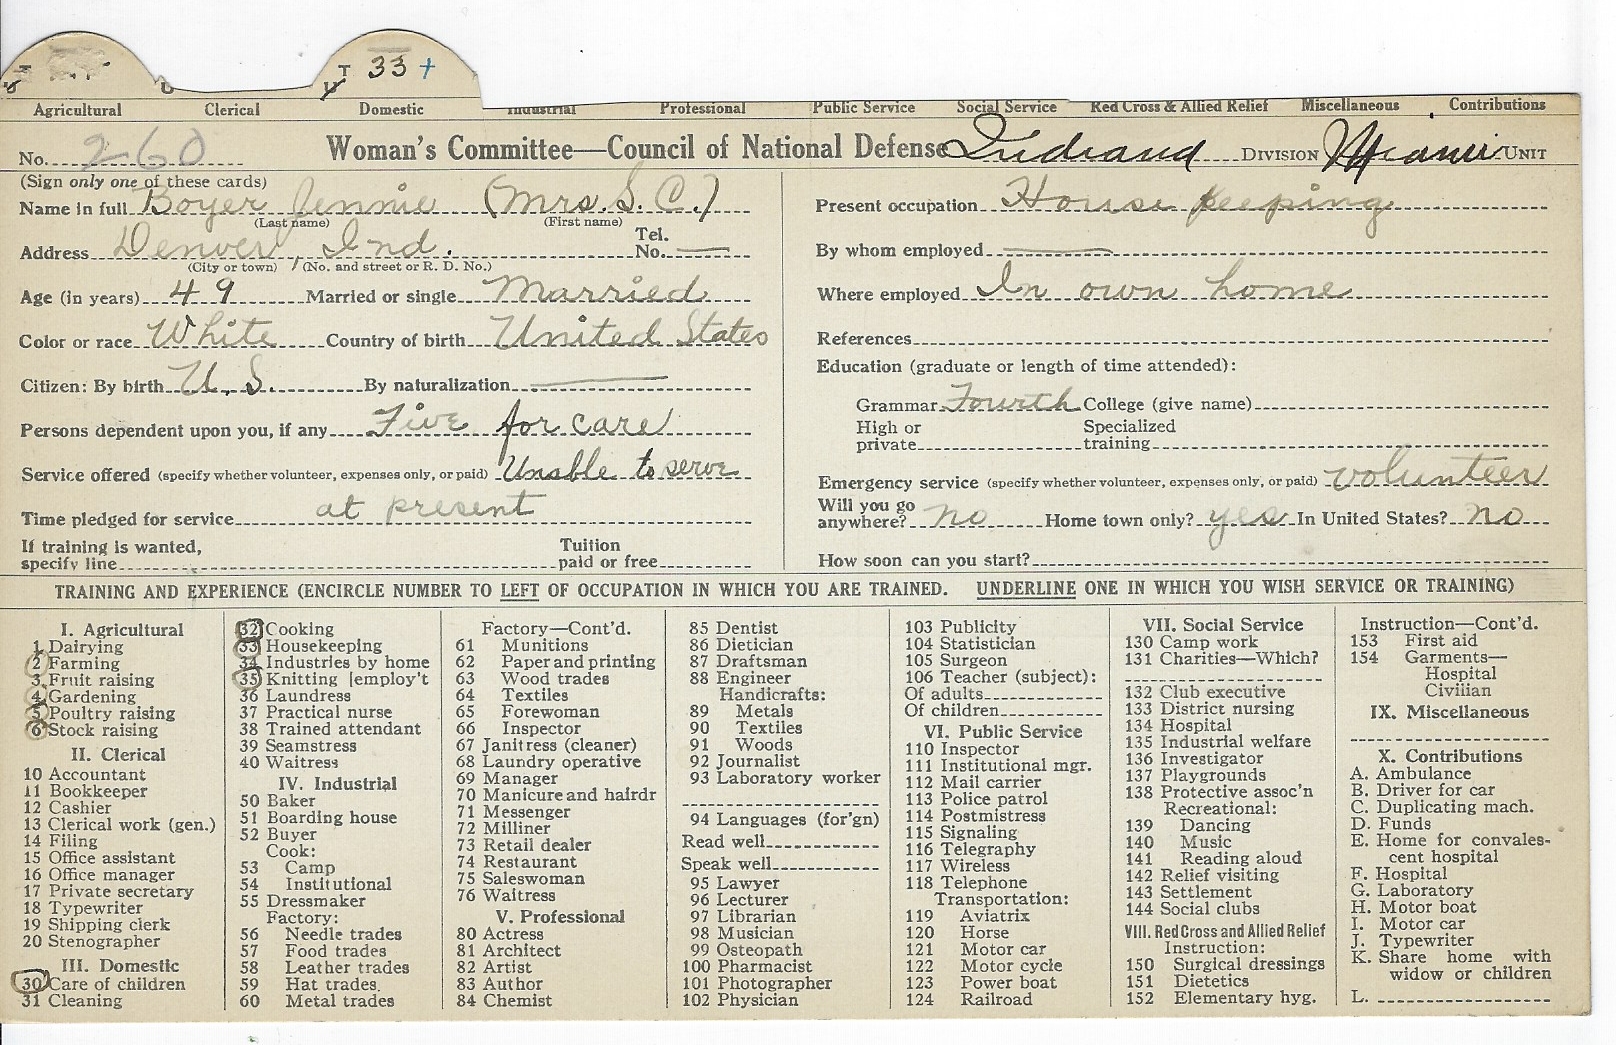 T 33 +
Agricultural Clerical Domestic Industrial Professional Public Service Social Service Red Cross & Allied Relief Miscellaneous Contributions
No. 260 Woman's Committee—Council of National Defense Indiana DIVISION Miami UNIT
(Sign only one of these cards)
Name in full Boyer Jennie (Mrs. S. C.)
(Last name) (First name)
Address Denver, Ind. Tel. No. ——
(City or town) (No. and street or R. D. No.)
Age (in years) 49 Married or single Married
Color or race White Country of birth United States
Citizen: By birth U. S. By naturalization ——
Persons dependent upon you, if any Five for care
Service offered (specify whether volunteer, expenses only, or paid) Unable to serve
Time pledged for service at present
If training is wanted, specify line Tuition paid or free
Present occupation House keeping
By whom employed ——
Where employed In own home
References
Education (graduate or length of time attended):
Grammar Fourth College (give name)
High or private Specialized training
Emergency service (specify whether volunteer, expenses only, or paid) volunteer
Will you go anywhere? no Home town only? yes In United States? no
How soon can you start?
TRAINING AND EXPERIENCE (ENCIRCLE NUMBER TO LEFT OF OCCUPATION IN WHICH YOU ARE TRAINED. UNDERLINE ONE IN WHICH YOU WISH SERVICE OR TRAINING)
I. Agricultural
1 Dairying
2 Farming
3 Fruit raising
4 Gardening
5 Poultry raising
6 Stock raising
II. Clerical
10 Accountant
11 Bookkeeper
12 Cashier
13 Clerical work (gen.)
14 Filing
15 Office assistant
16 Office manager
17 Private secretary
18 Typewriter
19 Shipping clerk
20 Stenographer
III. Domestic
30 Care of children
31 Cleaning
32 Cooking
33 Housekeeping
34 Industries by home
35 Knitting [employ't
36 Laundress
37 Practical nurse
38 Trained attendant
39 Seamstress
40 Waitress
IV. Industrial
50 Baker
51 Boarding house
52 Buyer
Cook:
53 Camp
54 Institutional
55 Dressmaker
Factory:
56 Needle trades
57 Food trades
58 Leather trades
59 Hat trades.
60 Metal trades
Factory—Cont'd.
61 Munitions
62 Paper and printing
63 Wood trades
64 Textiles
65 Forewoman
66 Inspector
67 Janitress (cleaner)
68 Laundry operative
69 Manager
70 Manicure and hairdr
71 Messenger
72 Milliner
73 Retail dealer
74 Restaurant
75 Saleswoman
76 Waitress
V. Professional
80 Actress
81 Architect
82 Artist
83 Author
84 Chemist
85 Dentist
86 Dietician
87 Draftsman
88 Engineer
Handicrafts:
89 Metals
90 Textiles
91 Woods
92 Journalist
93 Laboratory worker
94 Languages (for'gn)
Read well
Speak well
95 Lawyer
96 Lecturer
97 Librarian
98 Musician
99 Osteopath
100 Pharmacist
101 Photographer
102 Physician
103 Publicity
104 Statistician
105 Surgeon
106 Teacher (subject):
Of adults
Of children
VI. Public Service
110 Inspector
111 Institutional mgr.
112 Mail carrier
113 Police patrol
114 Postmistress
115 Signaling
116 Telegraphy
117 Wireless
118 Telephone
Transportation:
119 Aviatrix
120 Horse
121 Motor car
122 Motor cycle
123 Power boat
124 Railroad
VII. Social Service
130 Camp work
131 Charities—Which?
132 Club executive
133 District nursing
134 Hospital
135 Industrial welfare
136 Investigator
137 Playgrounds
138 Protective assoc'n
Recreational:
139 Dancing
140 Music
141 Reading aloud
142 Relief visiting
143 Settlement
144 Social clubs
VIII. Red Cross and Allied Relief
Instruction:
150 Surgical dressings
151 Dietetics
152 Elementary hyg.
Instruction—Cont'd.
153 First aid
154 Garments—
Hospital
Civilian
IX. Miscellaneous
X. Contributions
A. Ambulance
B. Driver for car
C. Duplicating mach.
D. Funds
E. Home for convales-
cent hospital
F. Hospital
G. Laboratory
H. Motor boat
I. Motor car
J. Typewriter
K. Share home with
widow or children
L.